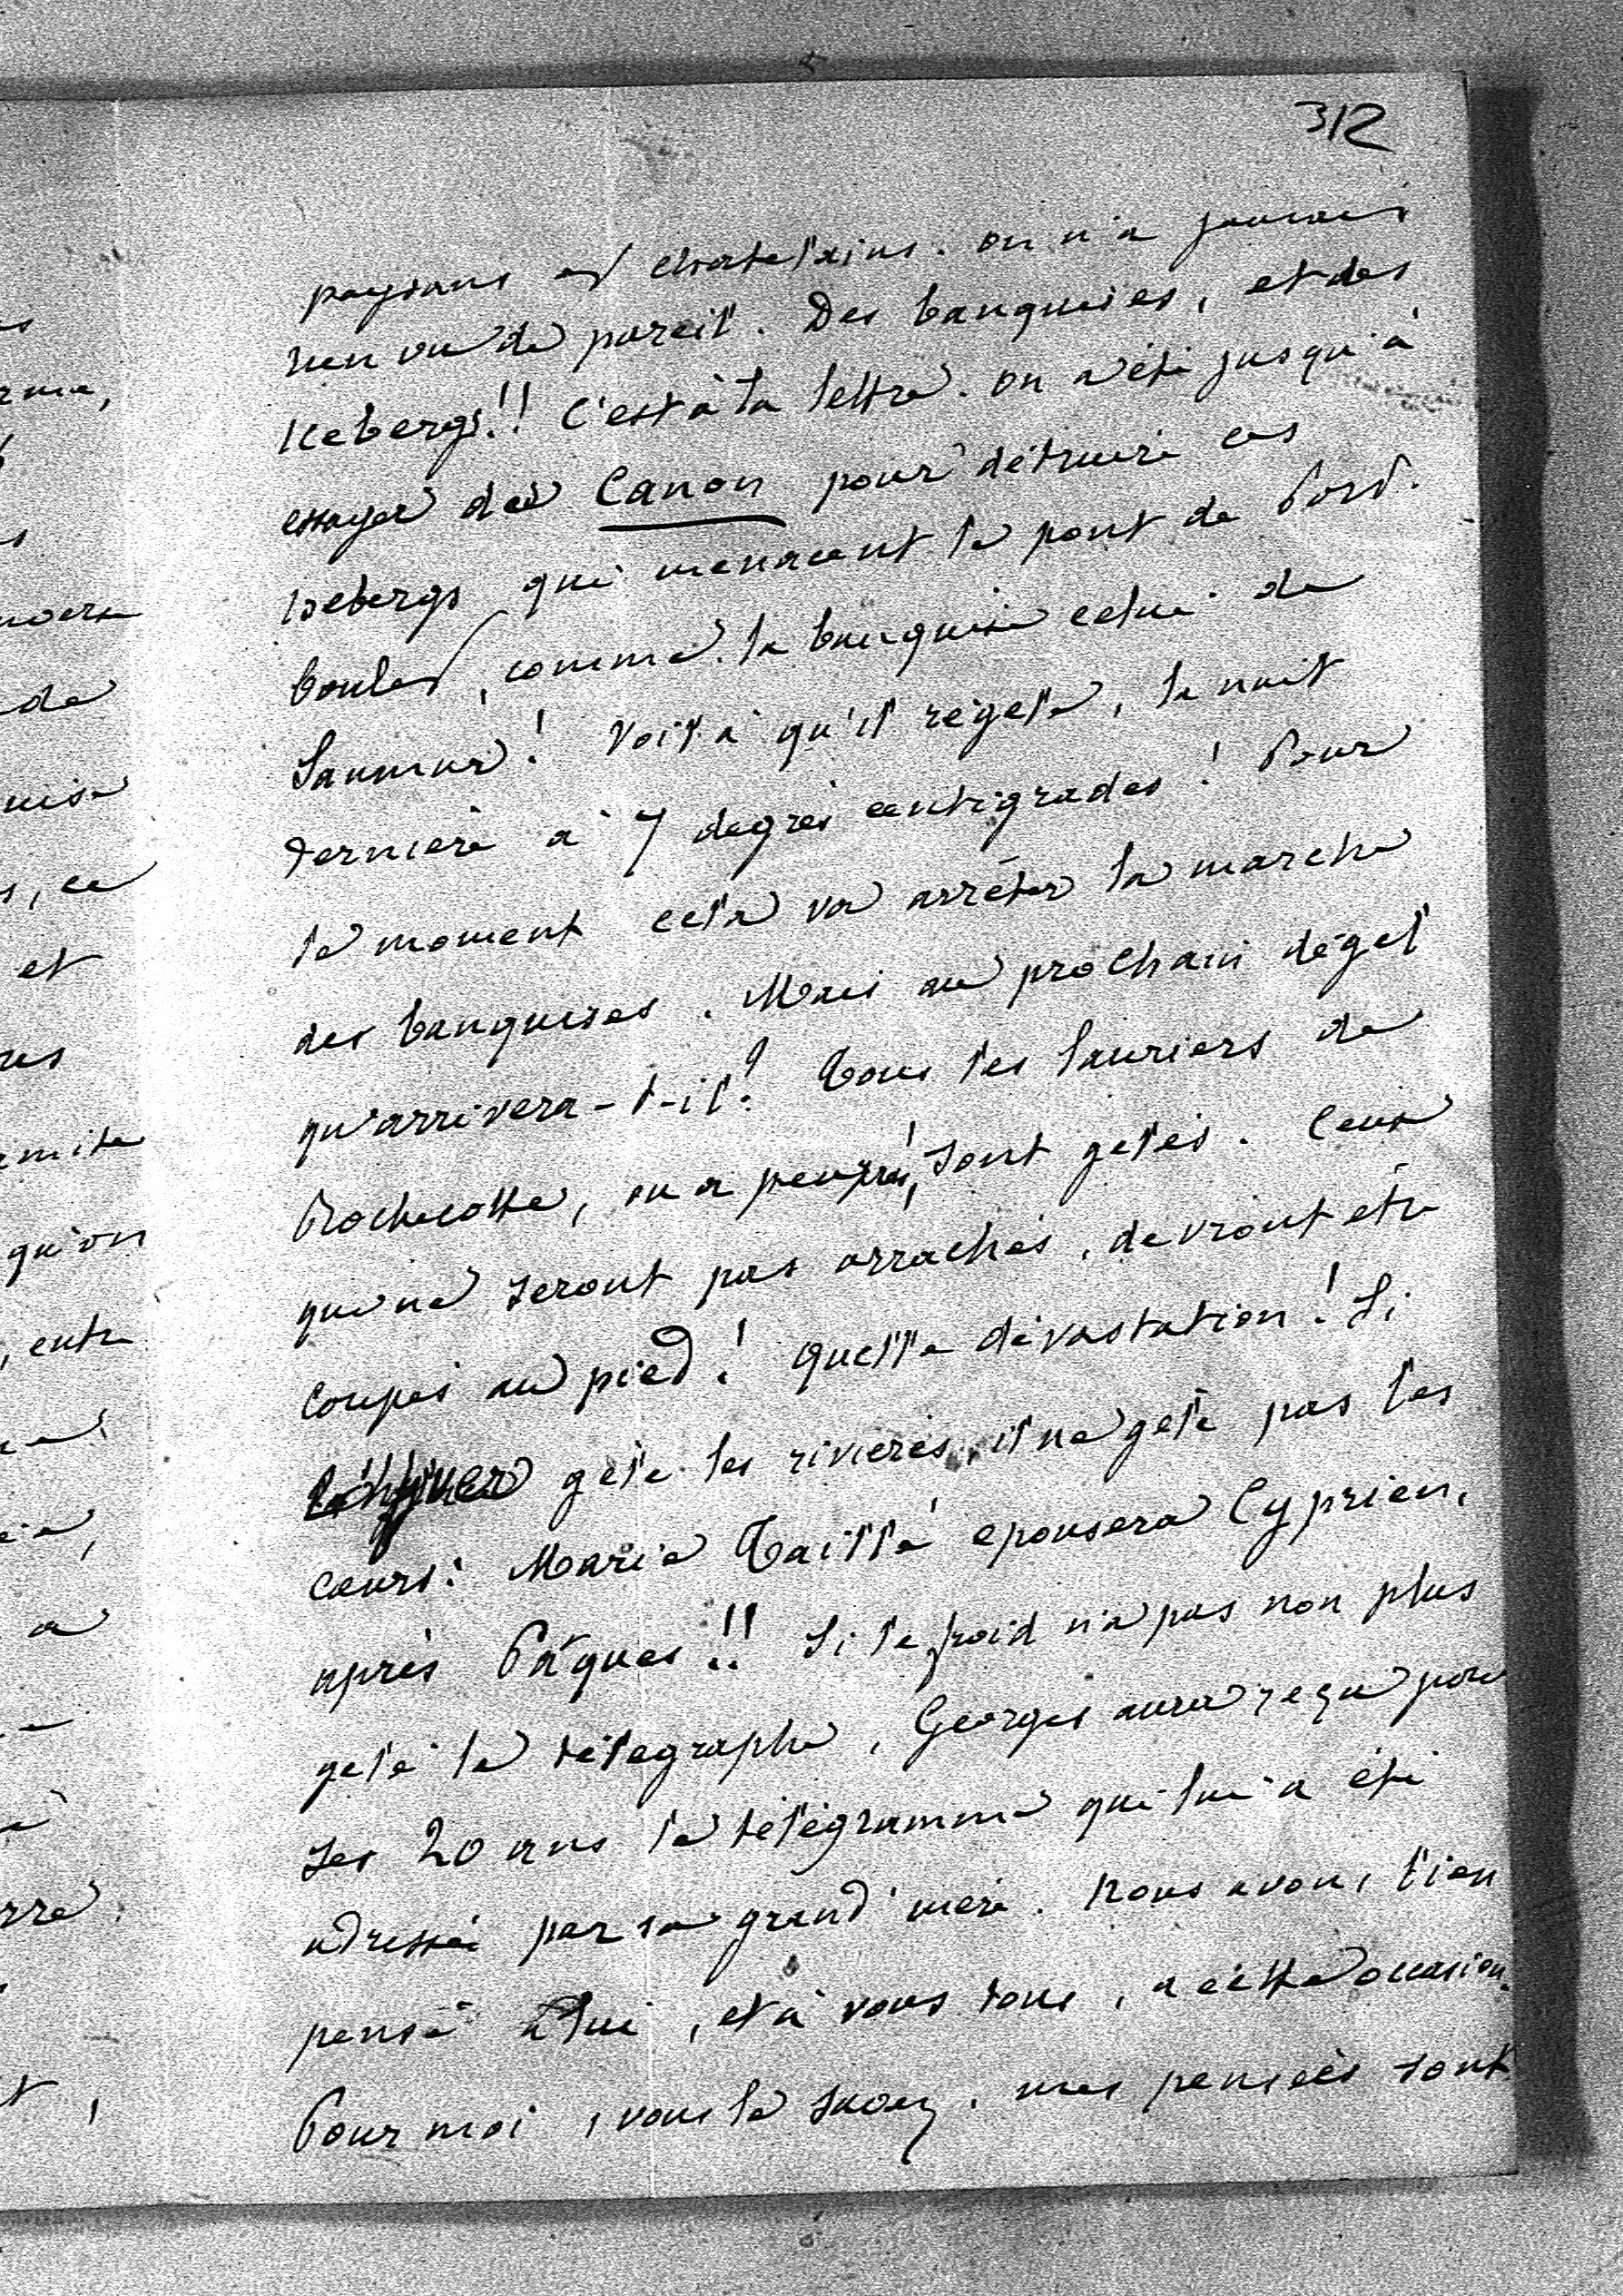 312
paysans et chatelains. on n'a jamais
rien vu de pareil. Des banquises, et des
Icebergs!! C'est à la lettre. on a été jusqu'à
essayer des Canon pour détruire ces
Icebergs qui menacent le pont de Port.
boulet, comme la banquise celui de
Saumur! Voilà qu'il règele, la nuit
dernière à 7 degrés centigrades! Pour
le moment cela va arrêter la marche
des banquises. Mais au prochain dégel
qu'arrivera-t-il? Tous les lauriers de
Rochecotte, ou à peu près, sont gelés. Ceux
qui ne seront pas arrachés, devront être
coupés au pied! quelle dévastation! Si
l'hyver gèle les rivières, il ne gèle pas les
cœurs: Marie Taillé epousera Cyprien,
après Pâques!! Si le froid n'a pas non plus
gelé le télégraphe, Georges aura reçu pour
ses 20 ans le télégramme qui lui a été
adressé par sa grand'mère. Nous avons bien
pensé à lui, et à vous tous, à cette occasion.
Pour moi, vous le savez, mes pensées sont
es
rme,
de
uise
s, ce
et
res
qu'on
, entre
a